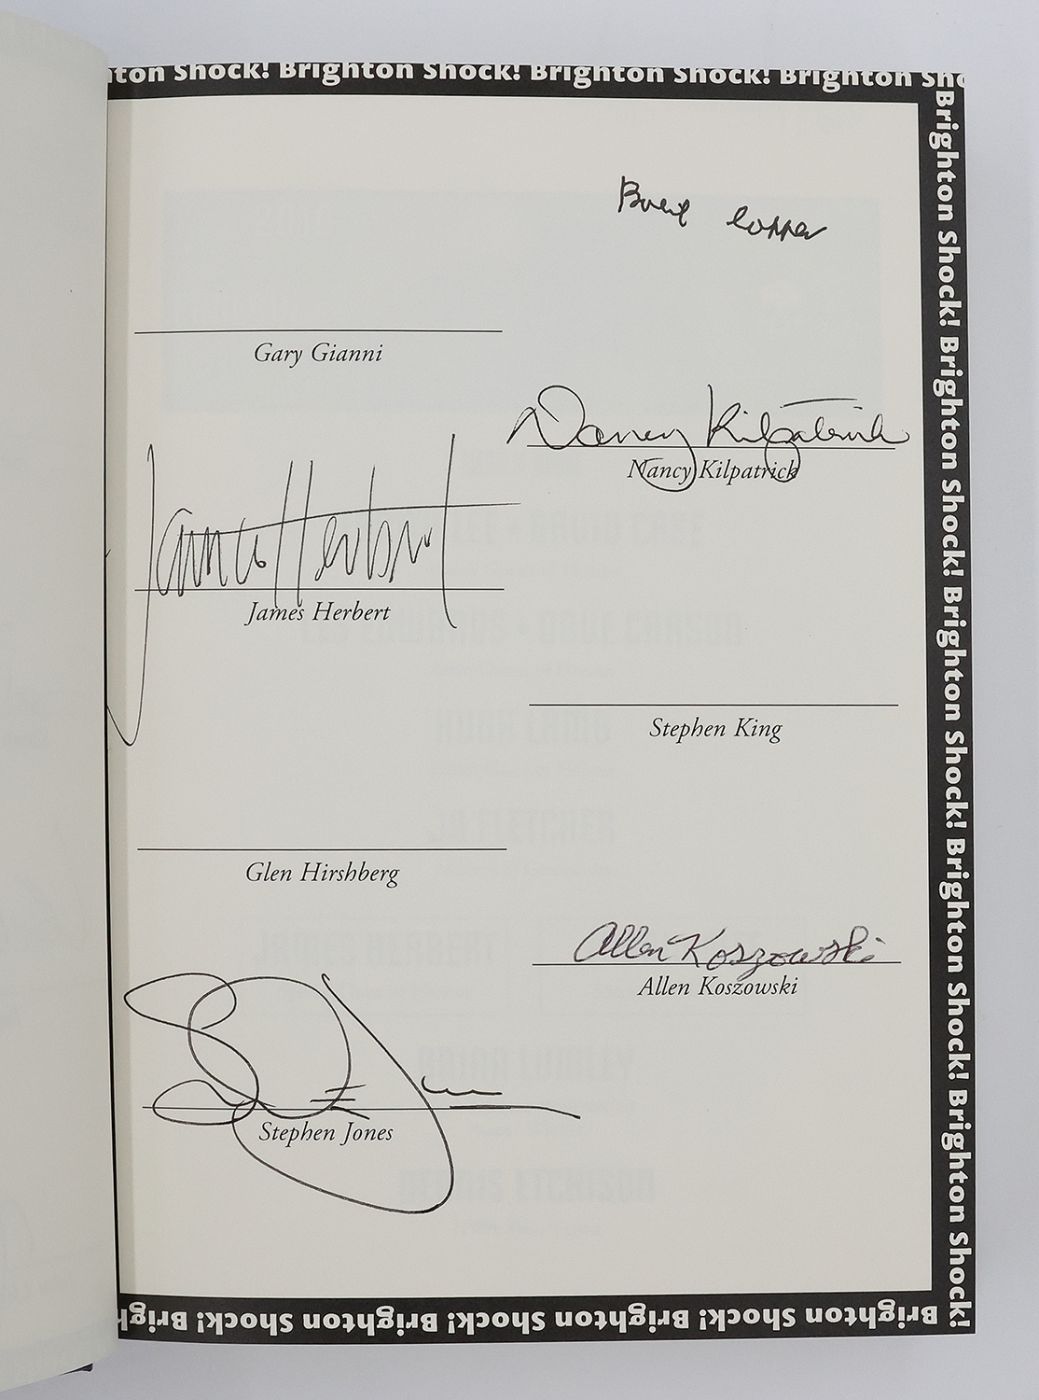 ton Shock! Brighton Shock! Brighton Shock! Brighton Sho
Brighton Shock! Brighton Shock! Brighton Shock! Brighton Shock! Brighton Shock!
Basil Copper
Gary Gianni
Nancy Kilpatrick
Nancy Kilpatrick
James Herbert
James Herbert
Stephen King
Glen Hirshberg
Allen Koszowski
Allen Koszowski
Stephen Jones
Brighton Shock! Brighton Shock! Brighton Shock! Brigh